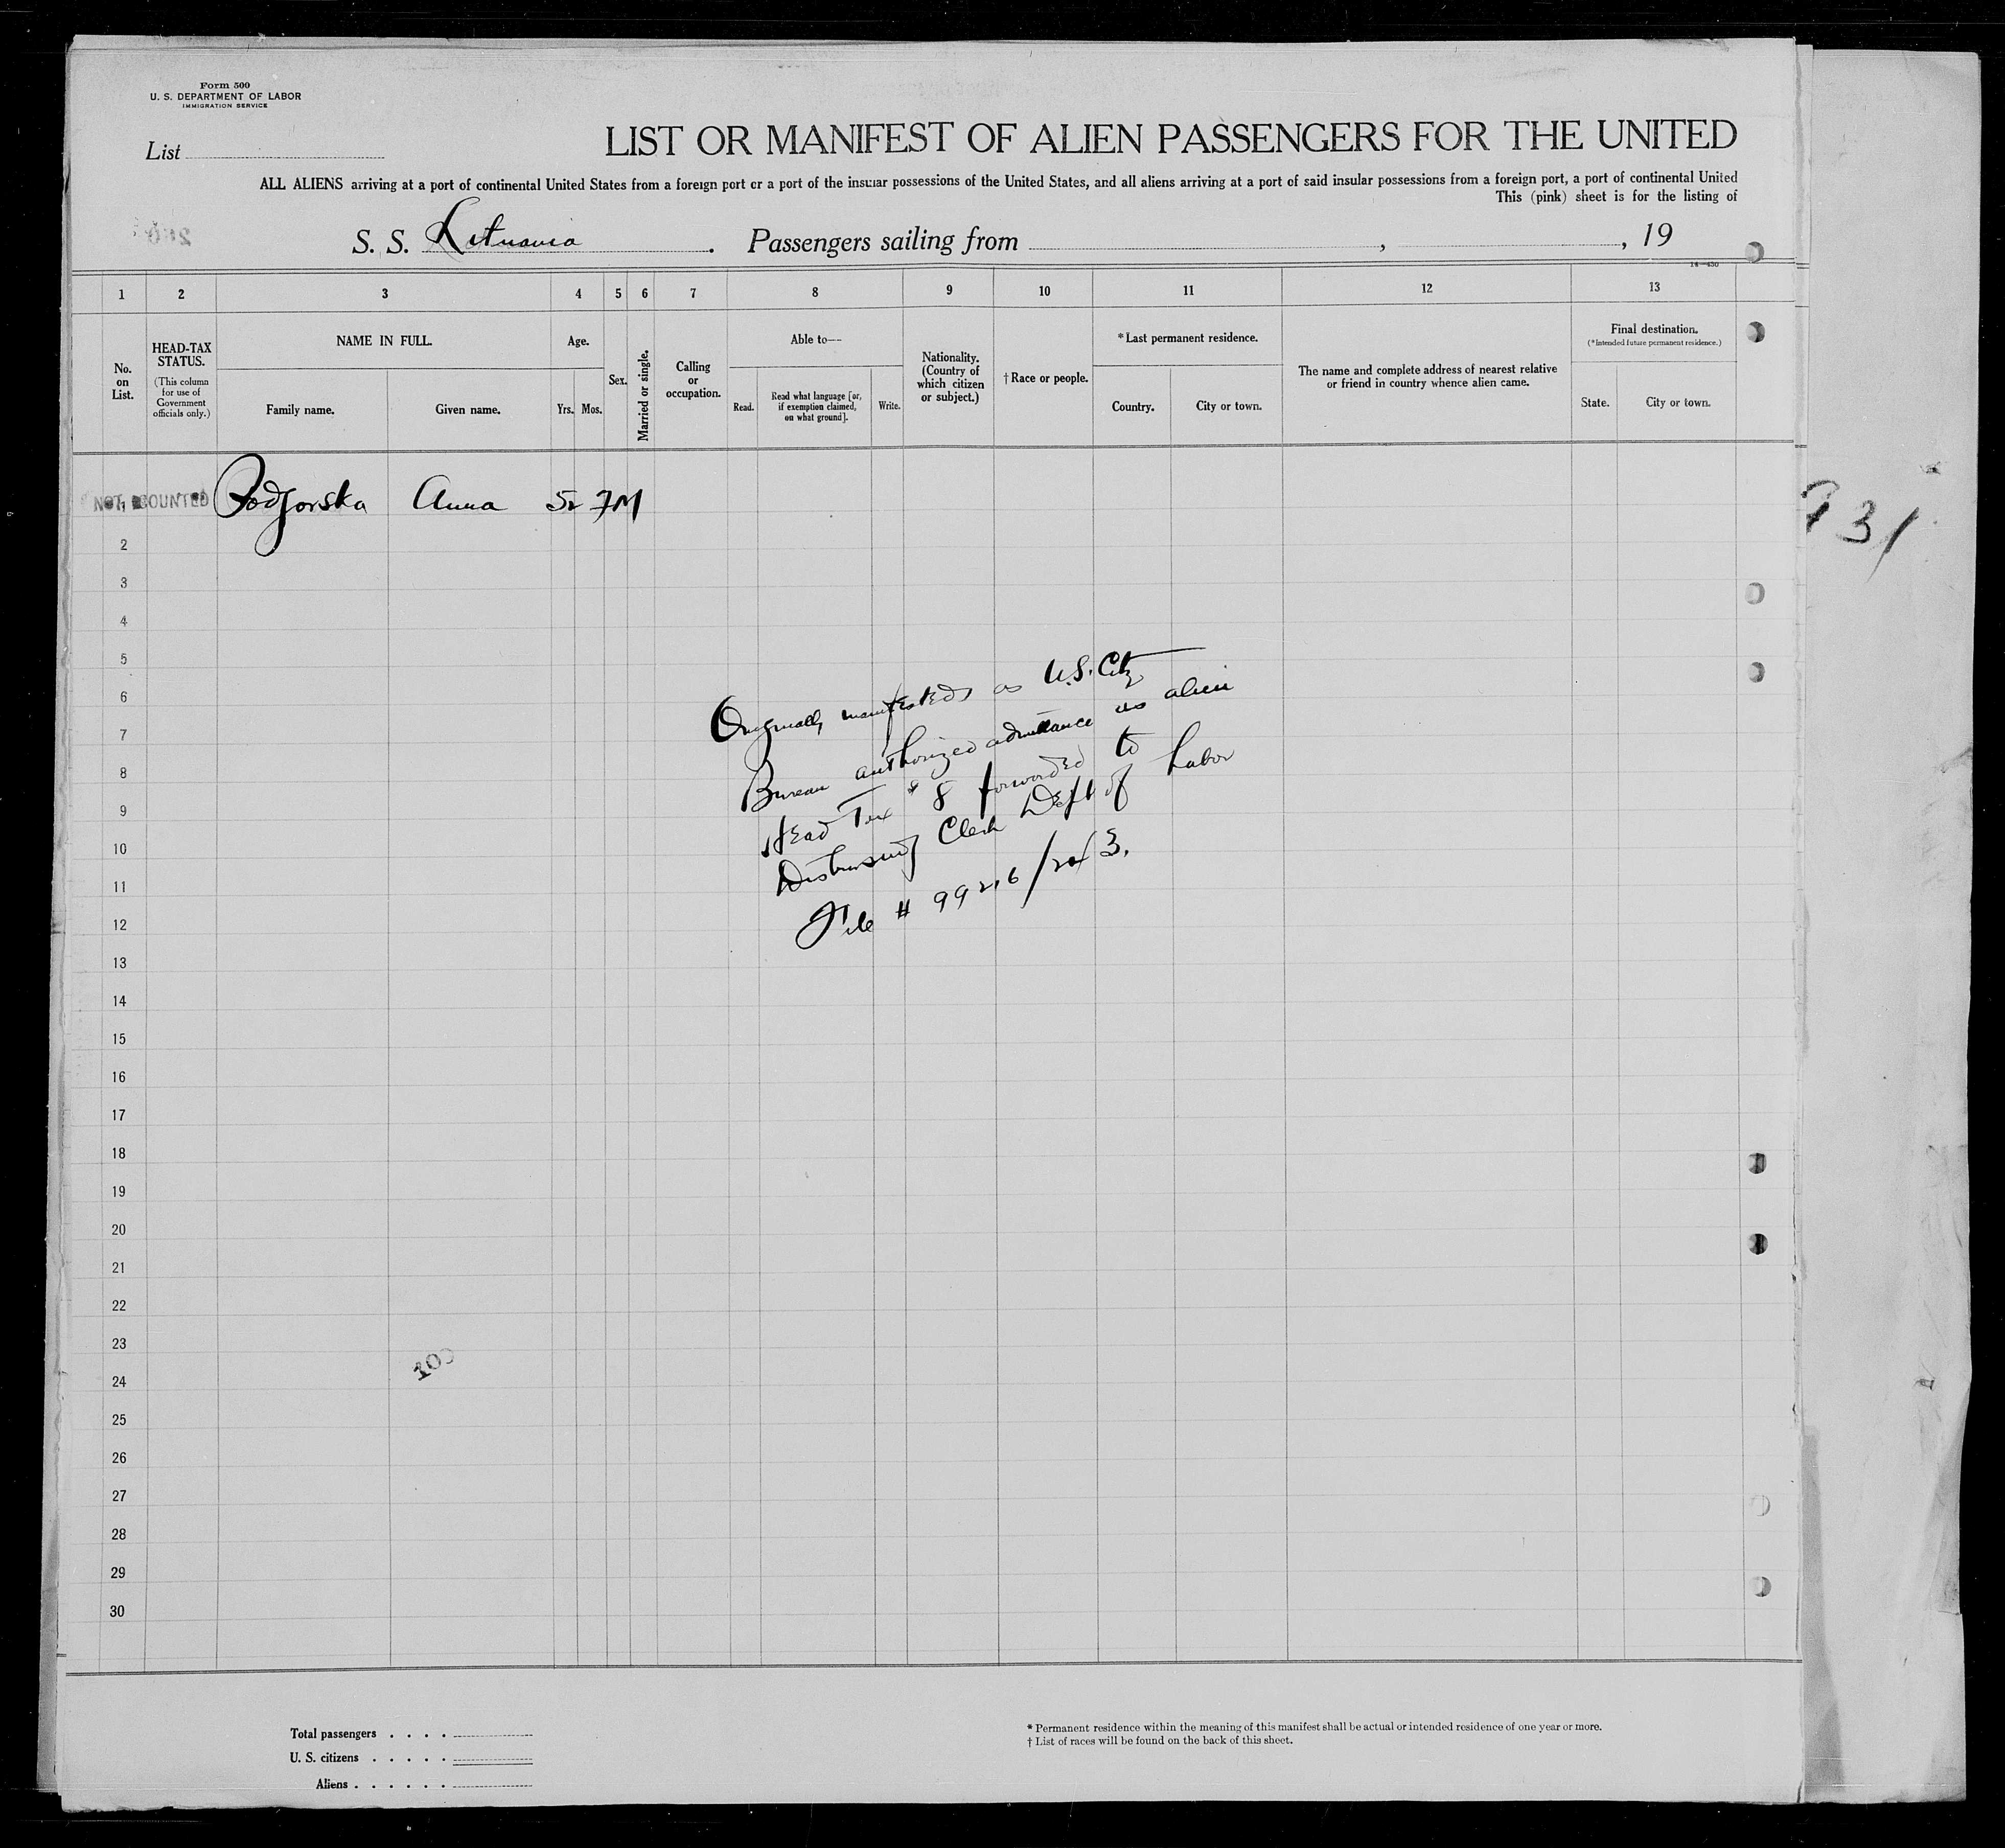 Form 500
U. S. DEPARTMENT OF LABOR
IMMIGRATION SERVICE
List
LIST OR MANIFEST OF ALIEN PASSENGERS FOR THE UNITED
ALL ALIENS arriving at a port of continental United States from a foreign port or a port of the insular possessions of the United States, and all aliens arriving at a port of said insular possessions from a foreign port, a port of continental United
This (pink) sheet is for the listing of
S. S. Lituania . Passengers sailing from , , 19
14—430
1 2 3 4 5 6 7 8 9 10 11 12 13
No. on List.
HEAD-TAX STATUS.
(This column for use of Government officials only.)
NAME IN FULL.
Family name. Given name.
Age.
Yrs. Mos.
Sex.
Married or single.
Calling or occupation.
Able to—
Read. Read what language [or, if exemption claimed, on what ground]. Write.
Nationality. (Country of which citizen or subject.)
† Race or people.
* Last permanent residence.
Country. City or town.
The name and complete address of nearest relative or friend in country whence alien came.
Final destination.
(* Intended future permanent residence.)
State. City or town.
NOT COUNTED Podgorska Anna 52 F M
931
2
3
4
5
6
7
8
9
10
11
12
13
14
15
16
17
18
19
20
21
22
23
24
25
26
27
28
29
30
Originally manifested as U.S. Citz
Bureau authorized admittance as alien
Head Tax $8 forwarded to
Disbursing Clerk Dept of Labor
File # 99216/
Total passengers . . . .
U. S. citizens . . . . .
Aliens . . . . . .
* Permanent residence within the meaning of this manifest shall be actual or intended residence of one year or more.
† List of races will be found on the back of this sheet.